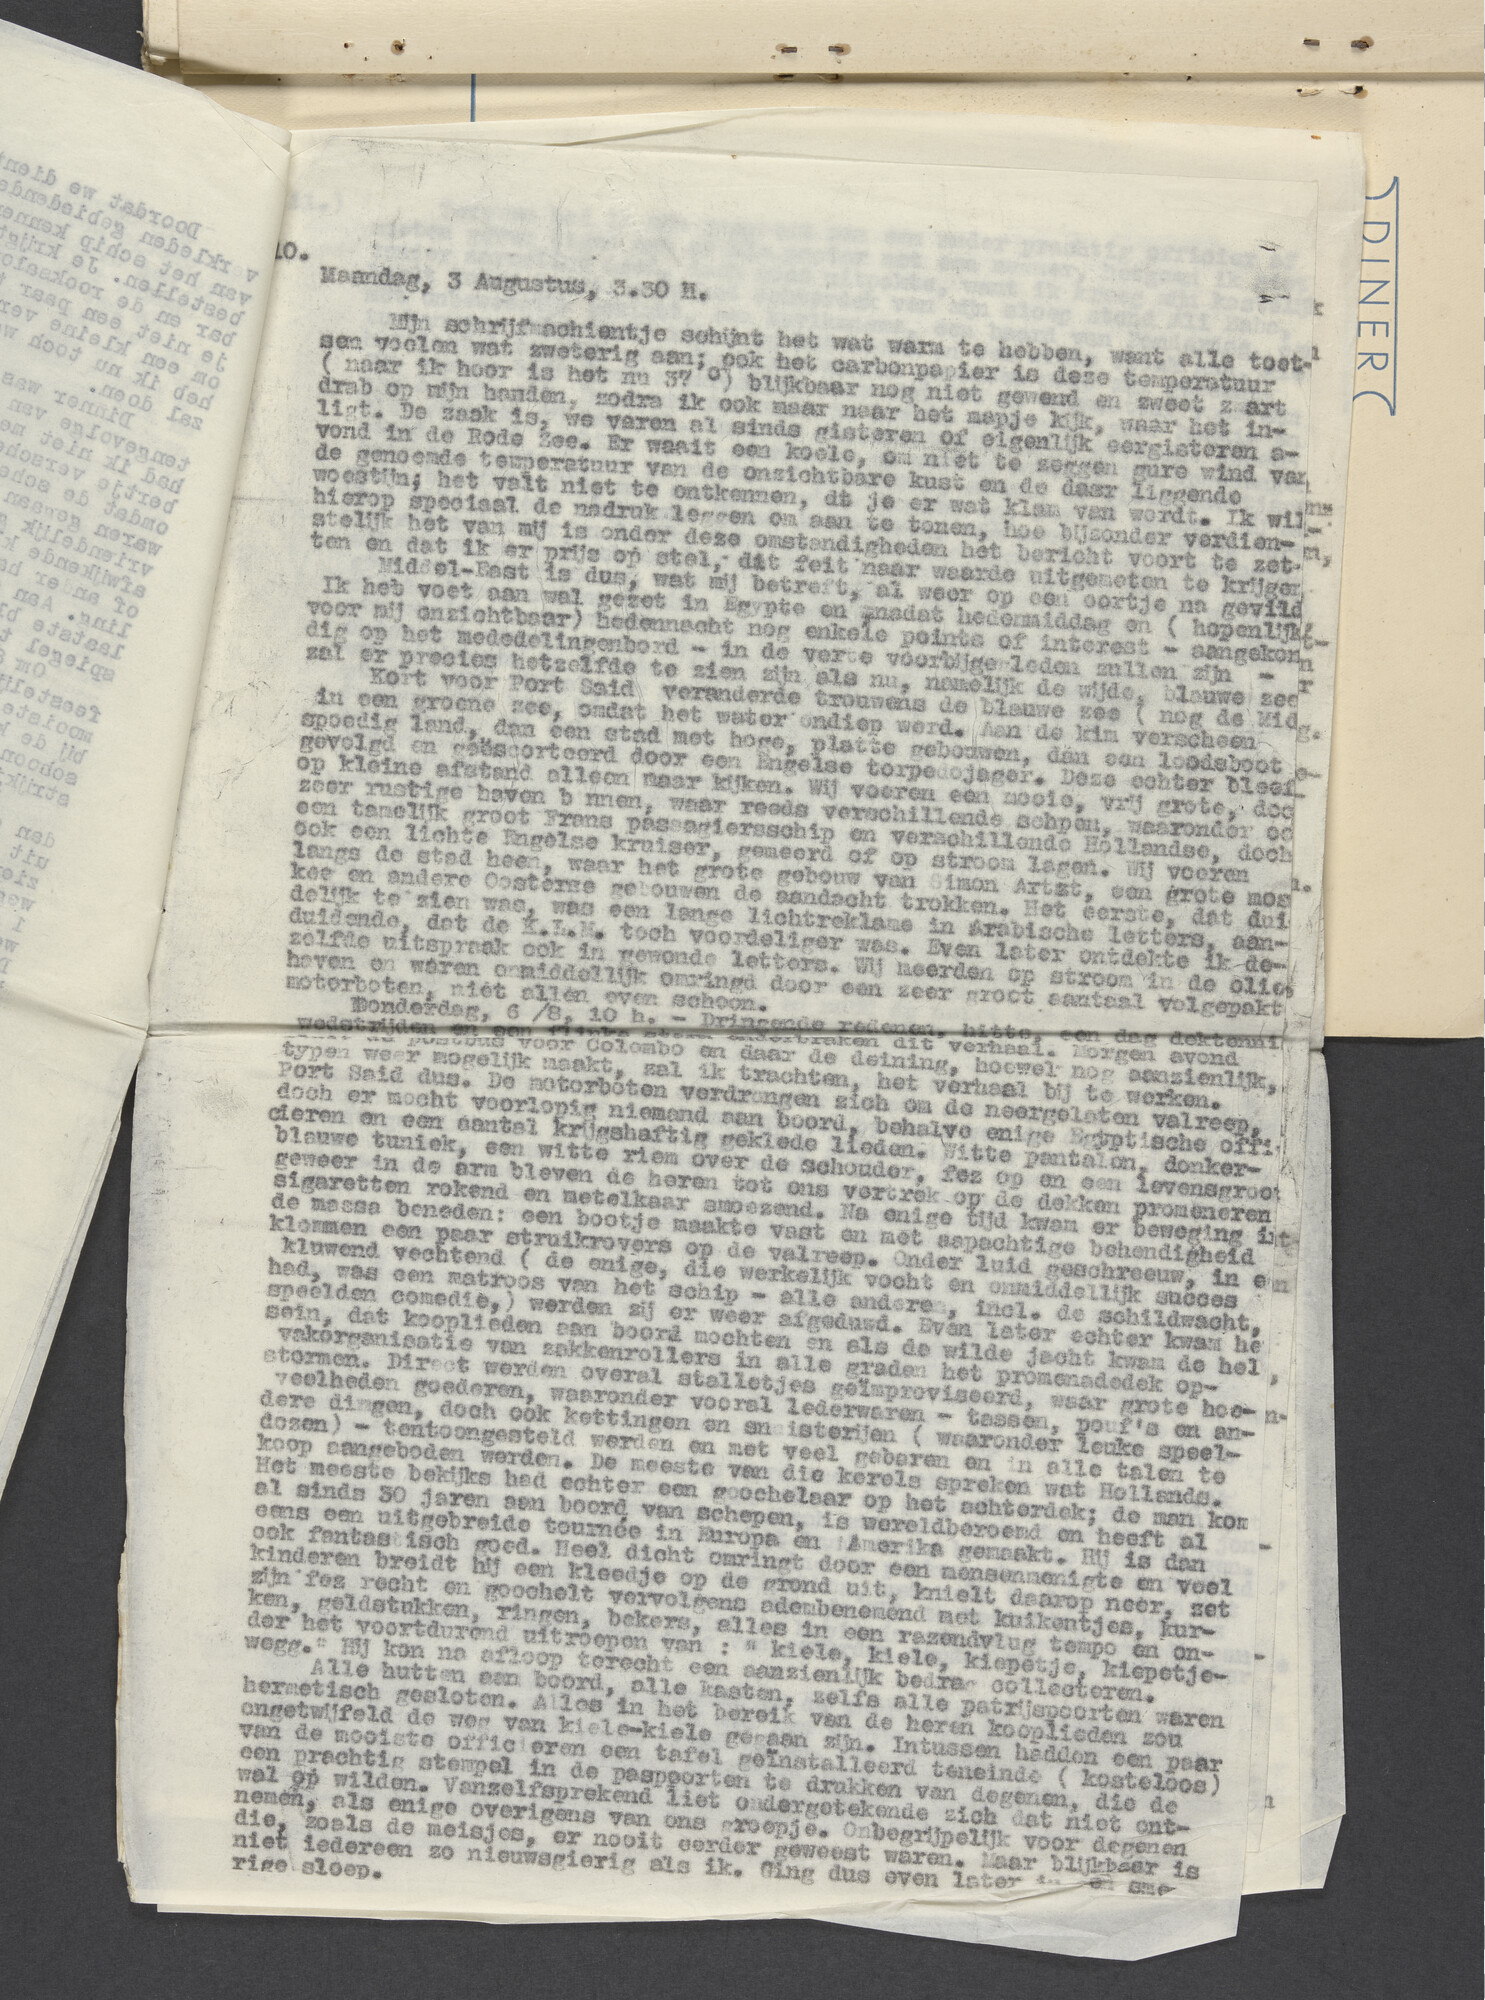 10.
Maandag, 3 Augustus, 3.30 H.
Mijn schrijfmachientje schijnt het wat warm te hebben, want alle toet-
sen voelen wat zweterig aan; ook het carbonpapier is deze temperatuur
( naar ik hoor is het nu 37 °) blijkbaar nog niet gewend en zweet zwart
drab op mijn handen, zodra ik ook maar naar het mapje kijk, waar het in-
ligt. De zaak is, we varen al sinds gisteren of eigenlijk eergisteren a-
vond in de Rode Zee. Er waait een koele, om niet te zeggen gure wind van
de genoemde temperatuur van de onzichtbare kust en de daar liggende
woestijn; het valt niet te ontkennen, dt je er wat klam van wordt. Ik wil
hierop speciaal de nadruk leggen om aan te tonen, hoe bijzonder verdien-
stelijk het van mij is onder deze omstandigheden het bericht voort te zet-
ten en dat ik er prijs op stel, dit feit naar waarde uitgemeten te krijgen
Middel-East is dus, wat mij betreft, al weer op een oortje na gevild
Ik heb voet aan wal gezet in Egypte en nadat hedenmiddag en ( hopenlijk
voor mij onzichtbaar) hedennacht nog enkele points of interest - aangekon
dig op het mededelingenbord - in de verte voorbijgegleden zullen zijn -
zal er precies hetzelfde te zien zijn als nu, namelijk de wijde, blauwe zee
Kort voor Port Said veranderde trouwens de blauwe zee ( nog de Mid
in een groene zee, omdat het water ondiep werd. Aan de kim verscheen
spoedig land, dan een stad met hoge, platte gebouwen, dán een loodsboot
gevolgd en geëscorteerd door een Engelse torpedojager. Deze echter bleef
op kleine afstand alleen maar kijken. Wij voeren een mooie, vrij grote, doc
zeer rustige haven b nnen, waar reeds verschillende schpen, waaronder oo
een tamelijk groot Frans passagiersschip en verschillende Hollandse, doch
ook een lichte Engelse kruiser, gemeerd of op stroom lagen. Wij voeren
langs de stad heen, waar het grote gebouw van Simon Artzt, een grote mos
kee en andere Oosterse gebouwen de aandacht trokken. Het eerste, dat dui
delijk te zien was, was een lange lichtreklame in Arabische letters, aan-
duidende, dat de K.L.M. toch voordeliger was. Even later ontdekte ik de-
zelfde uitspraak ook in gewonde letters. Wij meerden op stroom in de olie
haven en waren onmiddellijk omringd door een zeer groot aantal volgepakt
motorboten, niet allen even schoon.
Donderdag, 6 /8, 10 h. - Dringende redenen, hitte, een dag dektenni
wedstrijden en een dit verhaal. Morgen avond
postbus voor Colombo en daar de deining, hoewel nog aanzienlijk,
typen weer mogelijk maakt, zal ik trachten, het verhaal bij te werken.
Port Said dus. De motorboten verdrongen zich om de neergelaten valreep,
doch er mocht voorlopig niemand aan boord, behalve enige Egyptische offi
cieren en een aantal krijgshaftig geklede lieden. Witte pantalon, donker-
blauwe tuniek, een witte riem over de schouder, fez op en een levensgroot
geweer in de arm bleven de heren tot ons vertrek op de dekken promeneren
sigaretten rokend en metelkaar smoezend. Na enige tijd kwam er beweging in
de massa beneden: een bootje maakte vast en met aapachtige behendigheid
klommen een paar struikrovers op de valreep. Onder luid geschreeuw, in een
kluwend vechtend ( de enige, die werkelijk vocht en onmiddellijk succes
had, was een matroos van het schip - alle anderen, incl. de schildwacht,
speelden comedie,) werden zij er weer afgeduwd. Even later echter kwam he
sein, dat kooplieden aan boord mochten en als de wilde jacht kwam de hel
vakorganisatie van zakkenrollers in alle graden het promenadedek op-
stormen. Direct werden overal stalletjes geïmproviseerd, waar grote hoe-
veelheden goederen, waaronder vooral lederwaren - tassen, pouf's en an-
dere dingen, doch ook kettingen en snuisterijen ( waaronder leuke speel-
dozen) - tentoongesteld werden en met veel gebaren en in alle talen te
koop aangeboden werden. De meeste van die kerels spreken wat Hollands.
Het meeste bekijks had echter een goochelaar op het achterdek; de man kom
al sinds 30 jaren aan boord van schepen, is wereldberoemd en heeft al
eens een uitgebreide tournée in Europa en Amerika gemaakt. Hij is dan
ook fantastisch goed. Heel dicht omringt door een mensenmenigte en veel
kinderen breidt hij een kleedje op de grond uit, knielt daarop neer, zet
zijn fez recht en goochelt vervolgens adembenemend met kuikentjes, kur-
ken, geldstukken, ringen, bekers, alles in een razendvlug tempo en on-
der het voortdurend uitroepen van : " kiele, kiele, kiepetje, kiepetje-
wegg." Hij kon na afloop terecht een aanzienlijk bedrag collecteren.
Alle hutten aan boord, alle kasten, zelfs alle patrijspoorten waren
hermetisch gesloten. Alles in het bereik van de heren kooplieden zou
ongetwijfeld de weg van kiele-kiele gegaan zijn. Intussen hadden een paar
van de mooiste officieren een tafel geïnstalleerd teneinde ( kosteloos)
een prachtig stempel in de paspoorten te drukken van degenen, die de
wal op wilden. Vanzelfsprekend liet ondergetekende zich dat niet ont-
nemen, als enige overigens van ons groepje. Onbegrijpelijk voor degenen
die, zoals de meisjes, er nooit eerder geweest waren. Maar blijkbaar is
niet iedereen zo nieuwsgierig als ik. Ging dus even later in en sme
rige sloep.
DINER